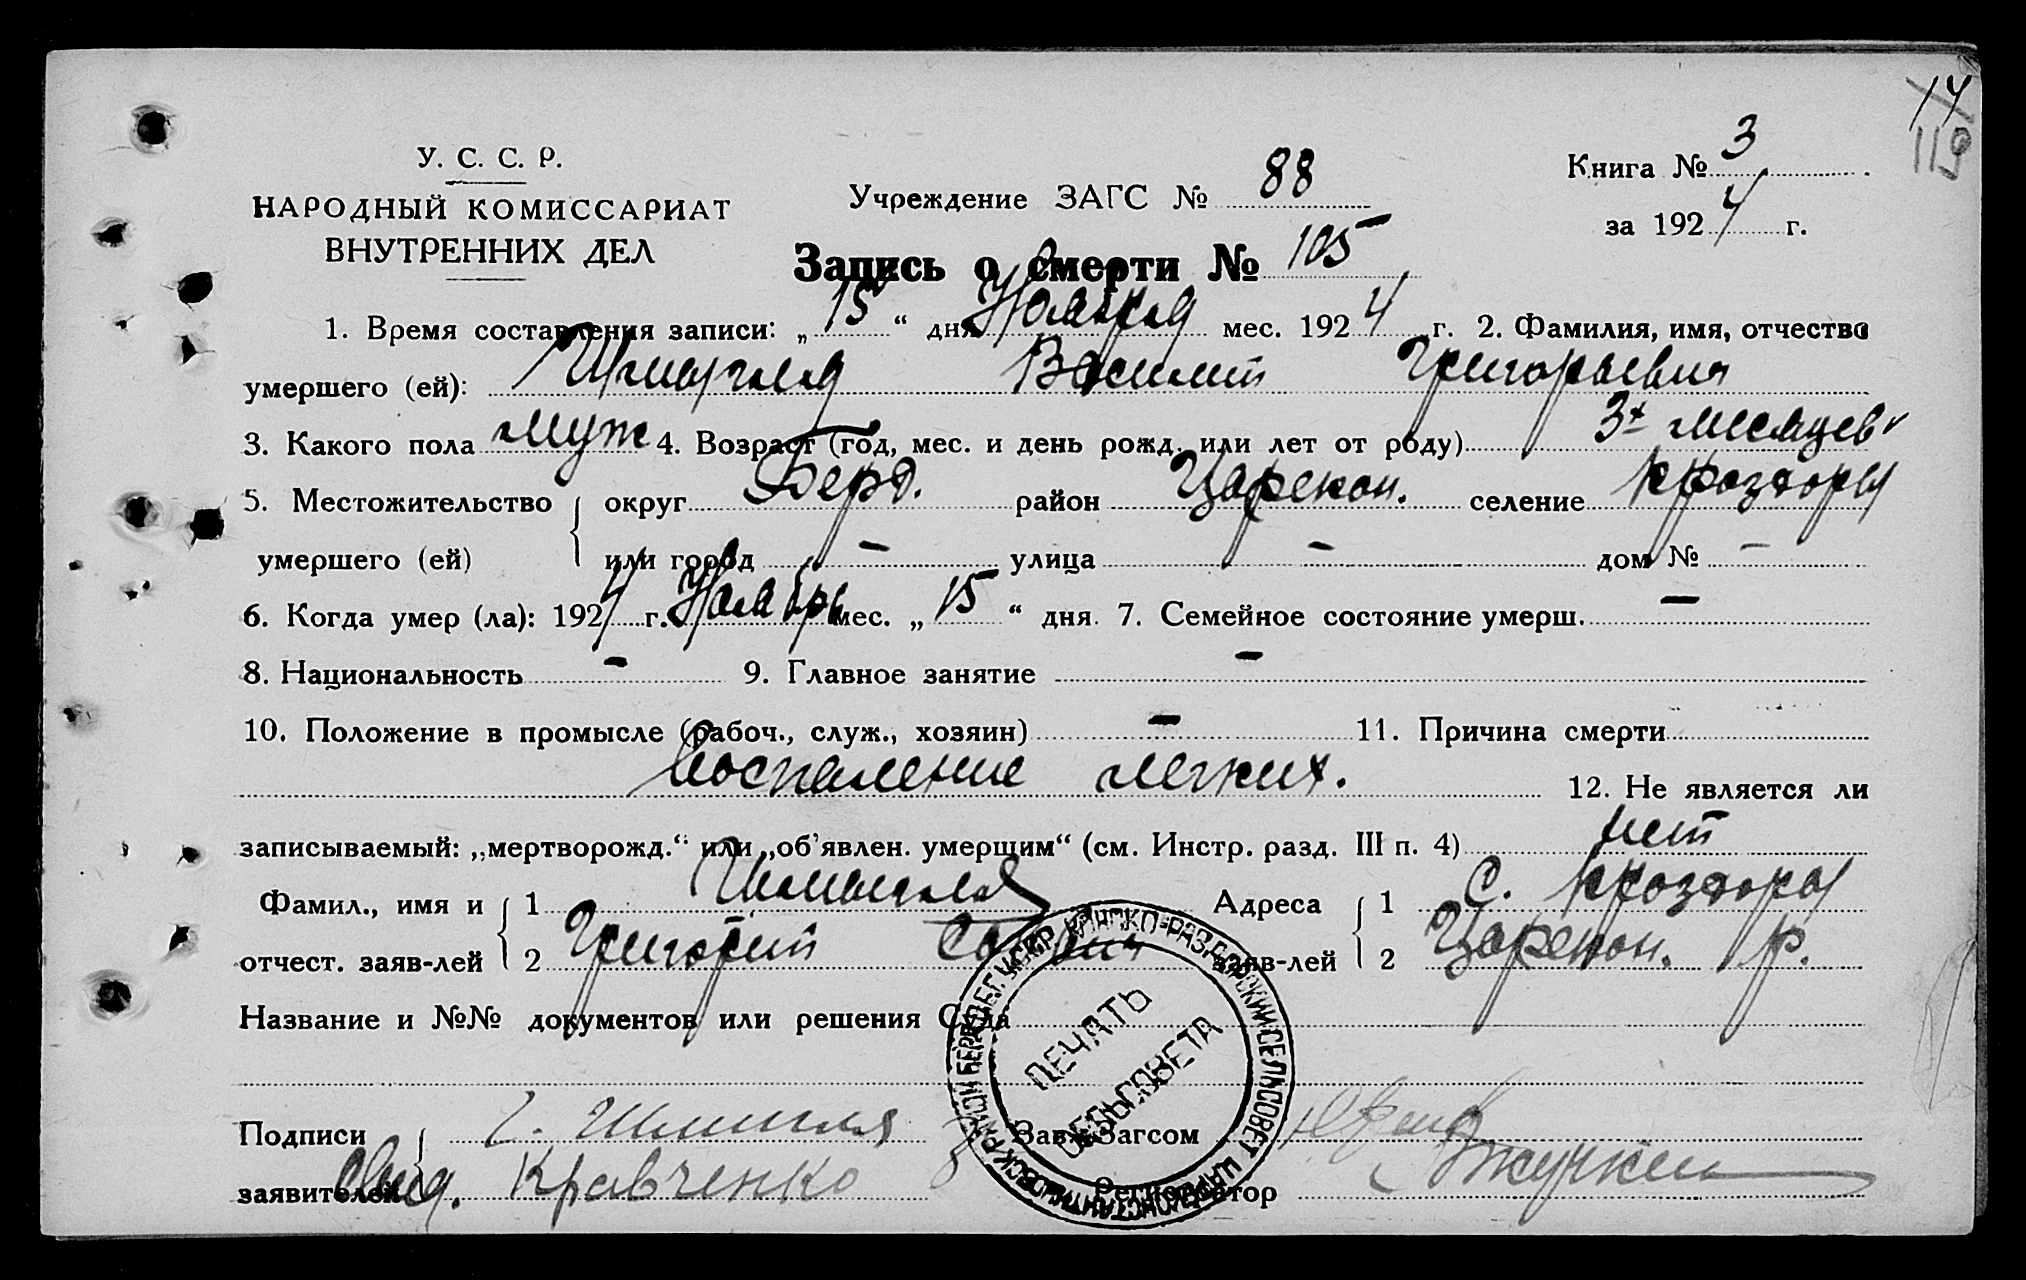 14
119
У. С. С. Р.
НАРОДНЫЙ КОМИССАРИАТ
ВНУТРЕННИХ ДЕЛ
Учреждение ЗАГС № 88
Книга № 3
за 1924 г.
Запись о смерти № 105
1. Время составления записи: „15“ дня Ноября мес. 1924 г. 2. Фамилия, имя, отчество
умершего (ей): Василий Григорьевич
3. Какого пола муж 4. Возраст (год, мес. и день рожд. или лет от роду) 3х месяцев
5. Местожительство округ Берд. район Царекон. селение К раздоры
умершего (ей) или город – улица – дом № –
6. Когда умер (ла): 1924 г. Ноябрь мес. „15“ дня. 7. Семейное состояние умерш. –
8. Национальность – 9. Главное занятие –
10. Положение в промысле (рабоч., служ., хозяин) – 11. Причина смерти
Воспаление легких. 12. Не является ли
записываемый: „мертворожд.“ или „об'явлен. умершим“ (см. Инстр. разд. III п. 4) нет
Фамил., имя и 1 Адреса 1 С. К раздоры
отчест. заяв-лей 2 Григорий заяв-лей 2 Царекон. р.
Название и №№ документов или решения Суда
ПЕЧАТЬ
СЕЛЬСОВЕТА
Подписи Г. Зав. Загсом
заявителей Кравченко Регистратор